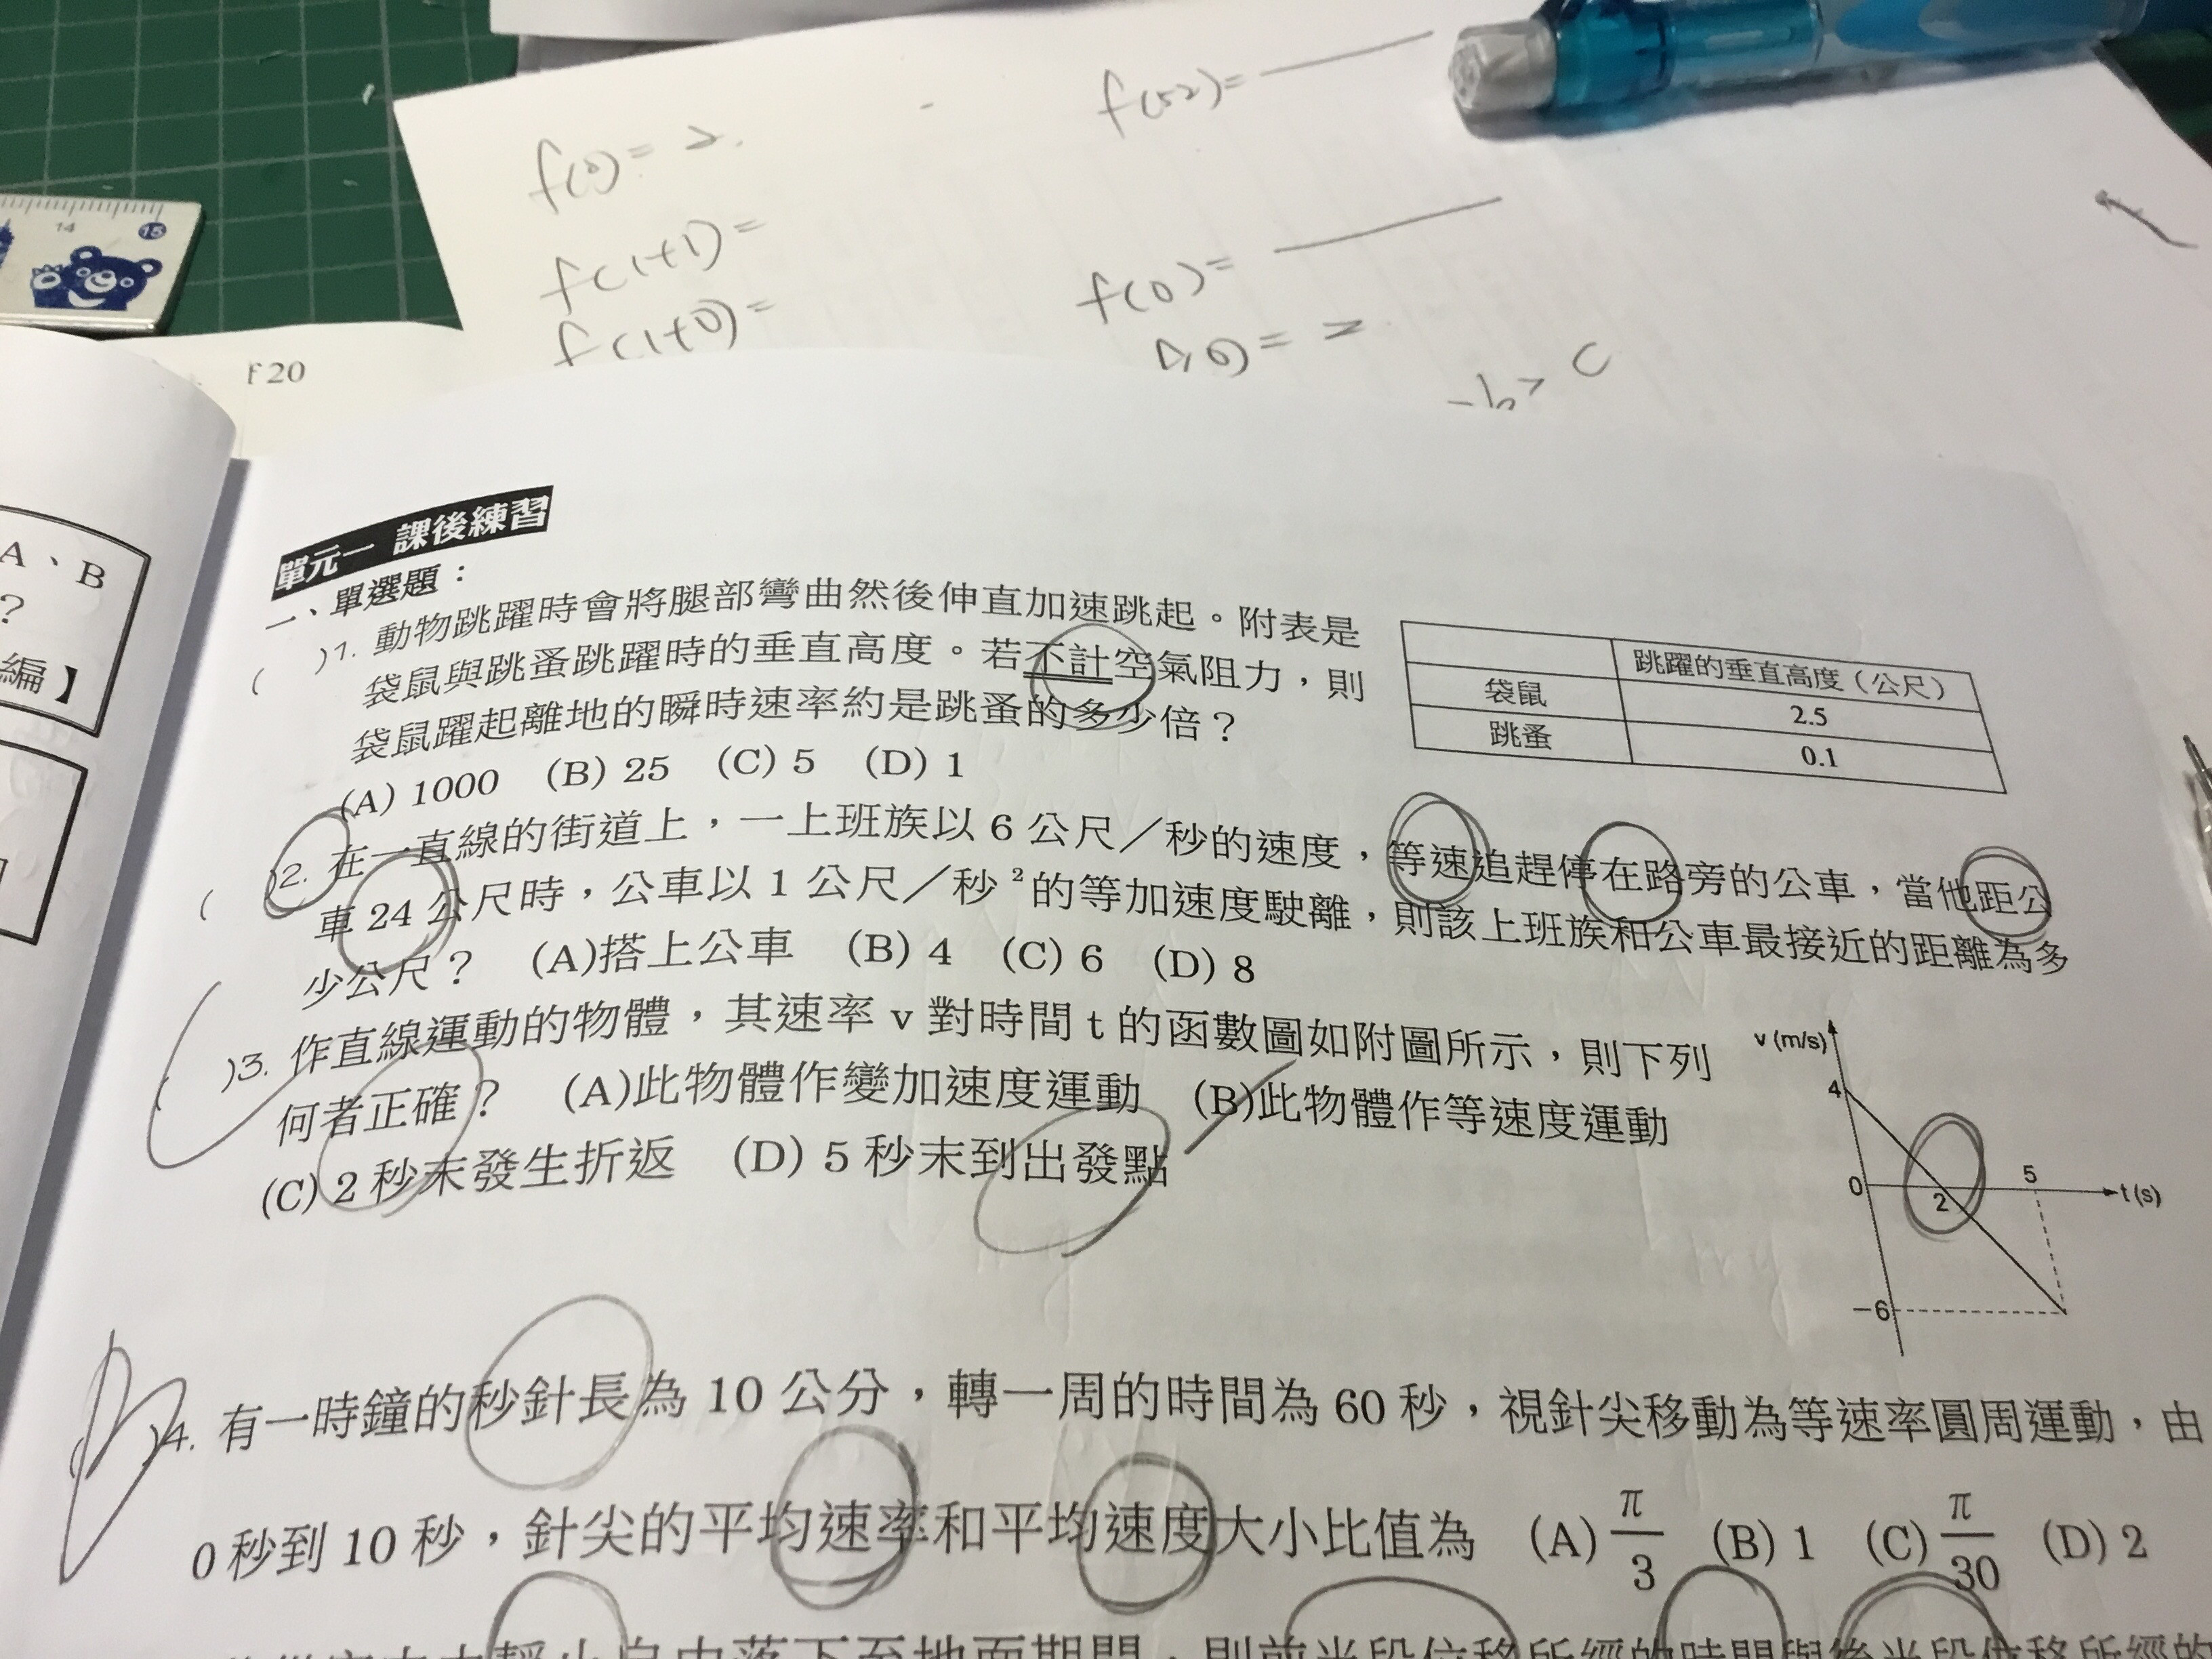 f(52)=
f(0)= 2.
f(1+1)=
f(0)=
f(1+0)=
14 15
20
單元一 課後練習
一、單選題：
( )1. 動物跳躍時會將腿部彎曲然後伸直加速跳起。附表是
袋鼠與跳蚤跳躍時的垂直高度。若不計空氣阻力，則
袋鼠躍起離地的瞬時速率約是跳蚤的多少倍？
(A) 1000 (B) 25 (C) 5 (D) 1
跳躍的垂直高度（公尺）
袋鼠 2.5
跳蚤 0.1
( )2. 在一直線的街道上，一上班族以 6 公尺／秒的速度，等速追趕停在路旁的公車，當他距公
車 24 公尺時，公車以 1 公尺／秒²的等加速度駛離，則該上班族和公車最接近的距離為多
少公尺？ (A)搭上公車 (B) 4 (C) 6 (D) 8
( )3. 作直線運動的物體，其速率 v 對時間 t 的函數圖如附圖所示，則下列
何者正確？ (A)此物體作變加速度運動 (B)此物體作等速度運動
(C) 2 秒末發生折返 (D) 5 秒末到出發點
v (m/s)
4
0 2 5 t (s)
−6
( )4. 有一時鐘的秒針長為 10 公分，轉一周的時間為 60 秒，視針尖移動為等速率圓周運動，由
0 秒到 10 秒，針尖的平均速率和平均速度大小比值為 (A) π/3 (B) 1 (C) π/30 (D) 2
靜止自由落下至地面期間，則前半段位移所經的時間與後半段位移所經的
A、B
？
編】